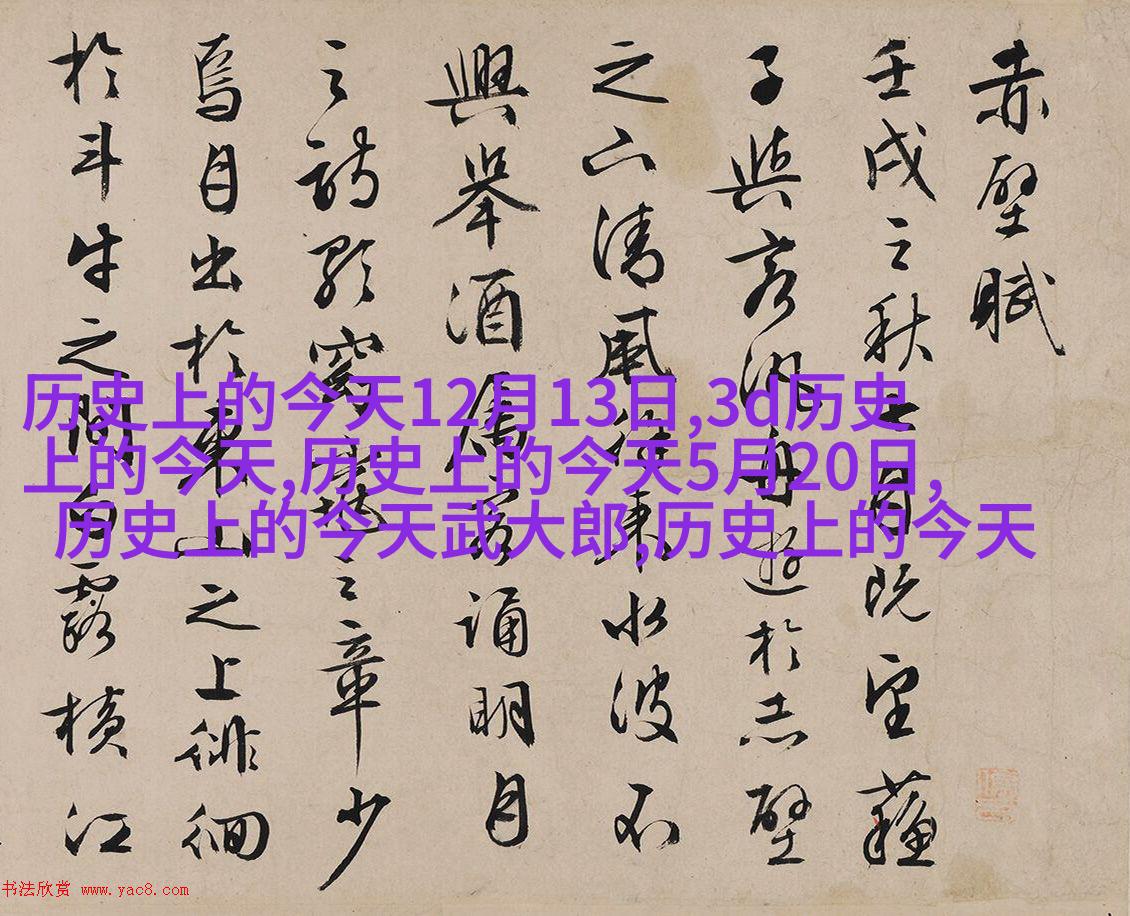 赤壁賦
壬戌之秋七月既望蘇
子與客汎舟遊於赤壁
之下清風徐來水波不
興舉酒屬客誦明月
之詩歌窈窕之章少
焉月出於東山之上徘徊
於斗牛之間白露橫江
历史上的今天12月13日,3d历史
上的今天,历史上的今天5月20日,
历史上的今天武大郎,历史上的今天
书法欣赏 www.yac8.com